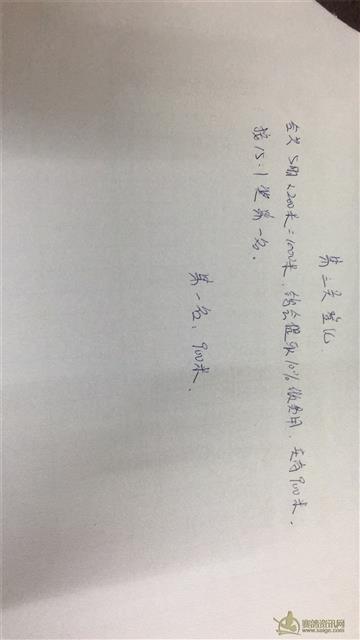 第三关 登记
全义 5羽×200米=1000米，鸽会提取10%做费用，还有900米，
按15:1 奖第一名。
第一名、900米、
赛鸽资讯网
www.saige.com